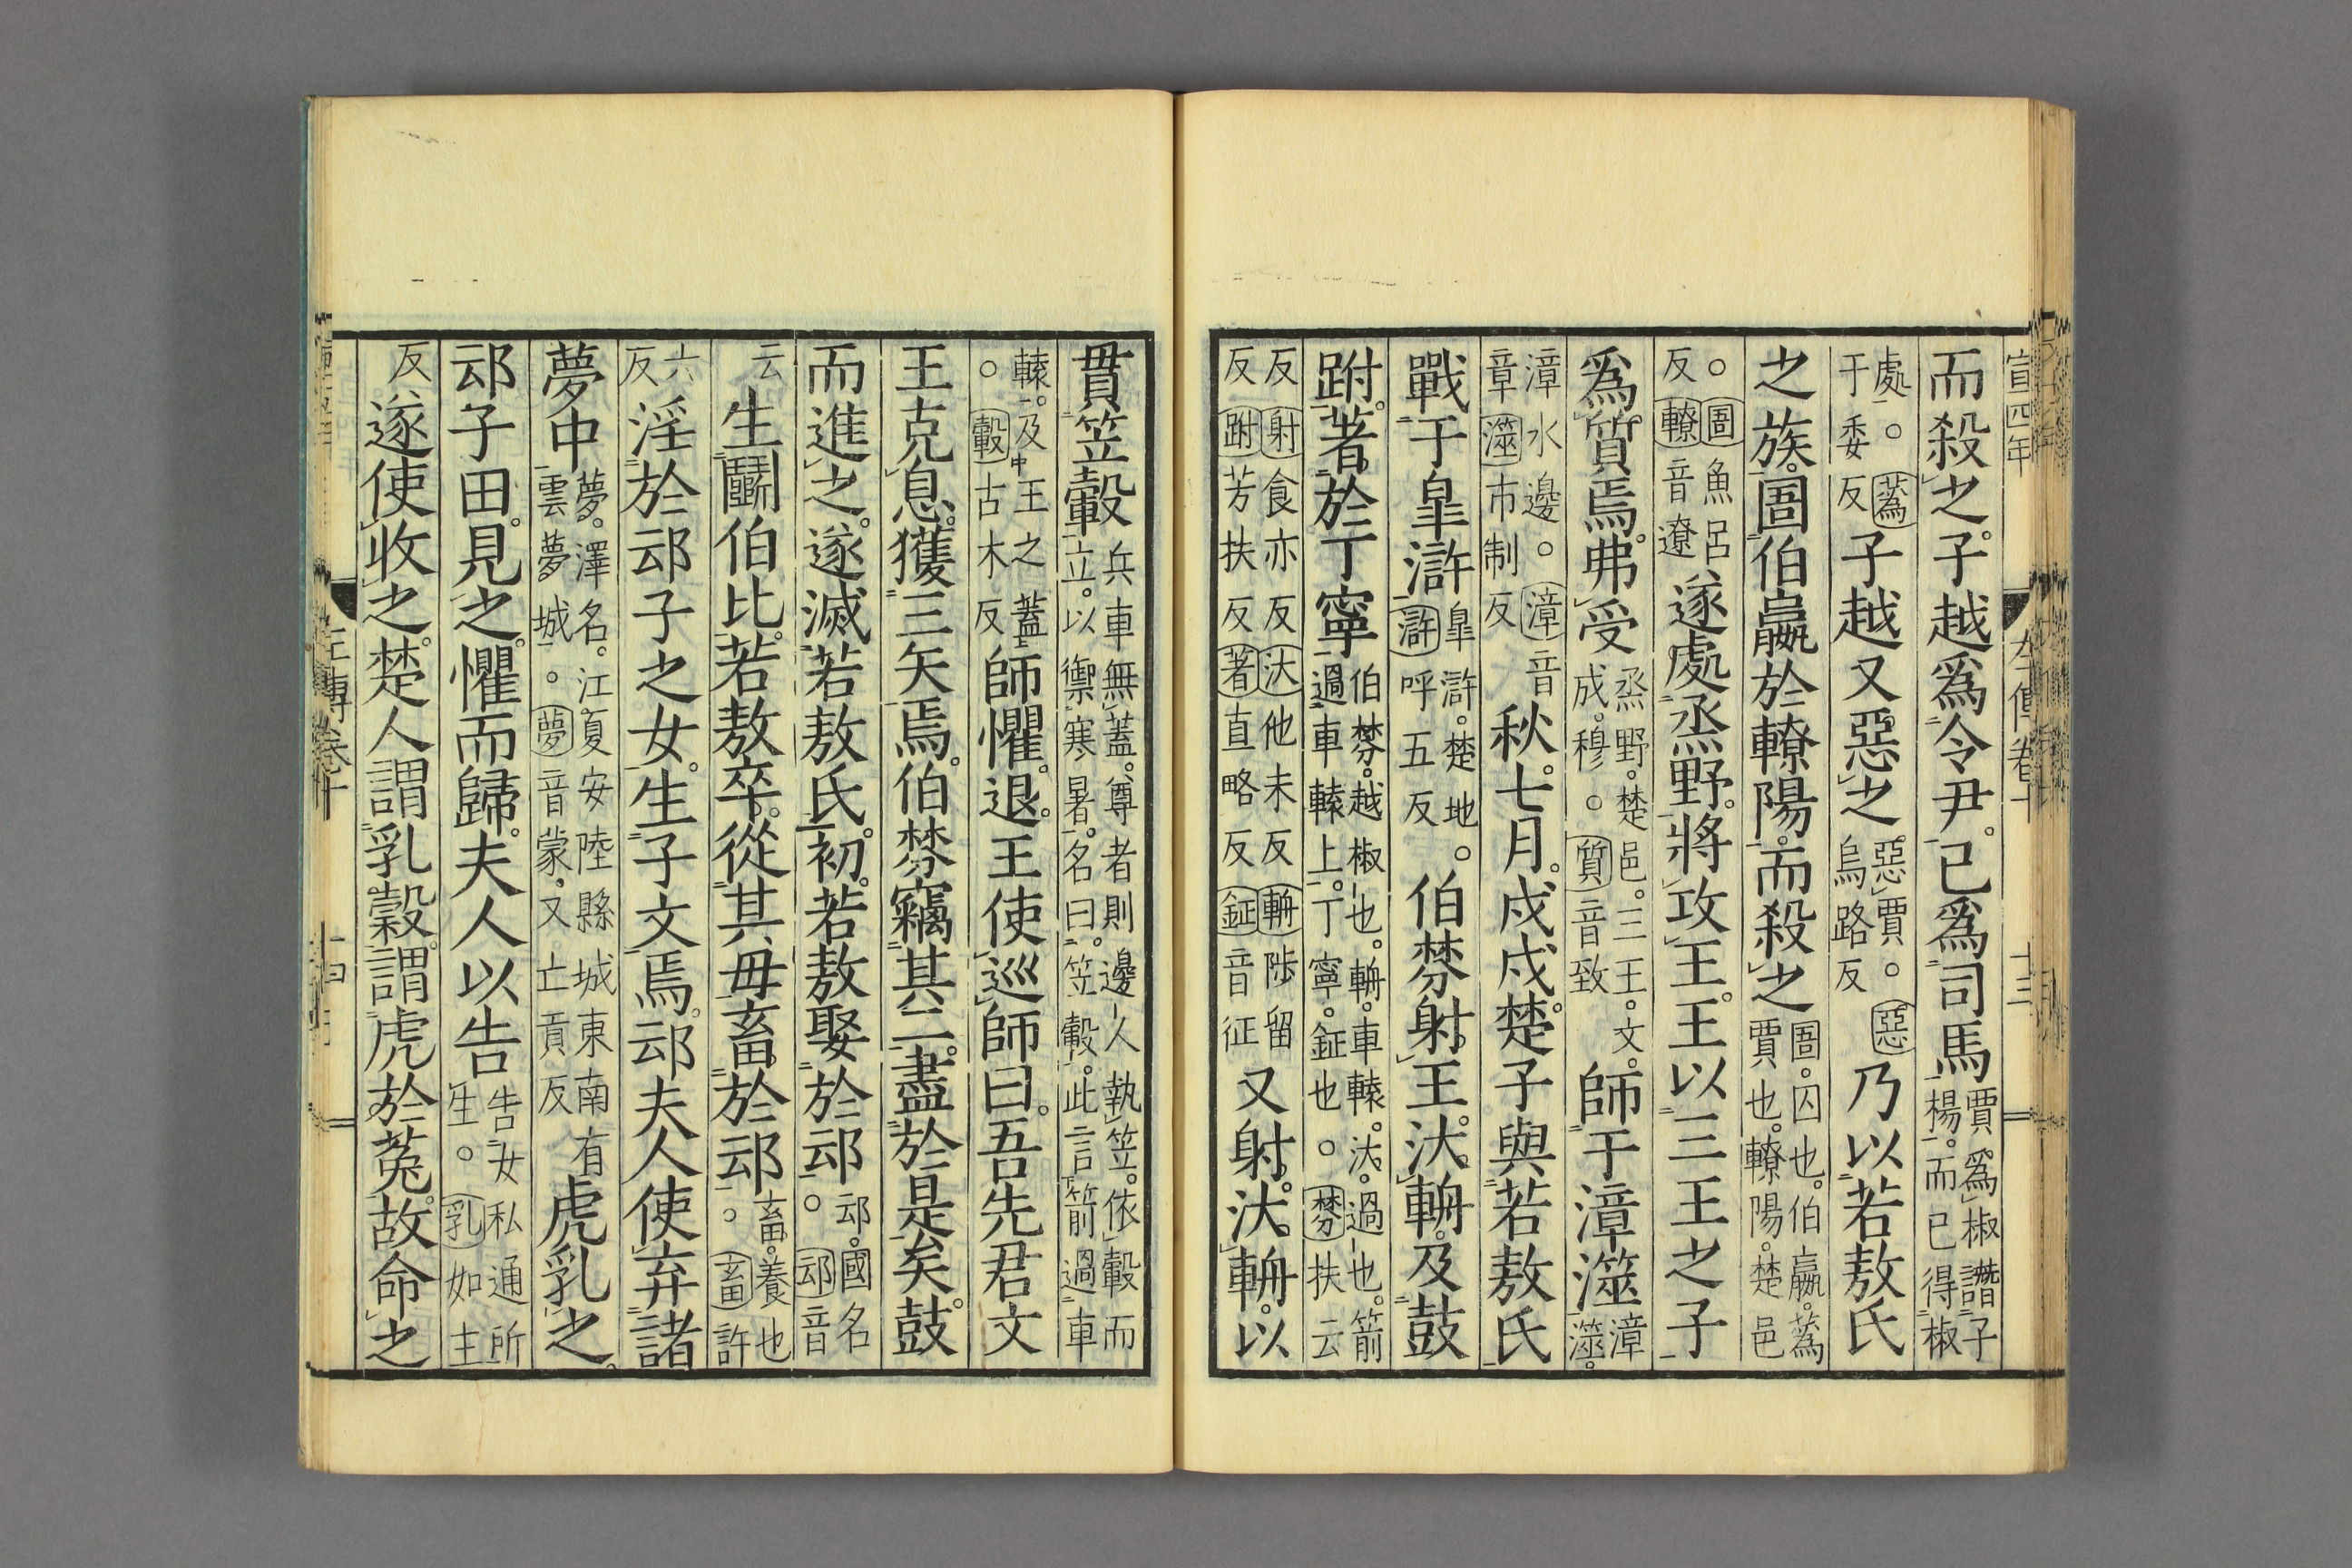 宣四年 左傳卷十 十三
而殺之。子越爲令尹。己爲司馬賈爲椒譖子楊。而已得椒
處。○蒍于委反子越又惡之惡賈。○惡烏路反乃以若敖氏
之族。圄伯嬴於轑陽。而殺之圄。囚也。伯嬴。蒍賈也。轑陽。楚邑
○圄魚呂反轑音遼遂處烝野。將攻王。王以三王之子
爲質焉。弗受烝野。楚邑。三王。文。成。穆。○質音致師于漳澨漳澨。
漳水邊。○漳音章澨市制反秋。七月。戊戌。楚子與若敖氏
戰于皐滸皐滸。楚地。○滸呼五反伯棼射王。汏輈。及鼓
跗。著於丁寧伯棼。越椒也。輈。車轅。汏。過也。箭過車轅上。丁寧。鉦也。○棼扶云
反射食亦反汏他末反輈陟留反跗芳扶反著直略反鉦音征又射。汏輈。以
貫笠轂兵車無蓋。尊者則邊人執笠。依轂而立。以禦寒暑。名曰。笠轂。此言箭過車
轅。及王之蓋。○轂古木反師懼。退。王使巡師曰。吾先君文
王克息。獲三矢焉。伯棼竊其二。盡於是矣。鼓
而進之。遂滅若敖氏。初。若敖娶於䢵䢵。國名。○䢵音
云生鬬伯比。若敖卒。從其母畜於䢵畜。養也。○畜許
六反淫於䢵子之女。生子文焉。䢵夫人使弃諸
夢中夢。澤名。江夏安陸縣城東南有雲夢城。○夢音蒙。又亡貢反虎乳之。
䢵子田。見之。懼而歸。夫人以告告女私通所生。○乳如主
反遂使收之。楚人謂乳穀。謂虎於菟。故命之
左傳卷十 十四